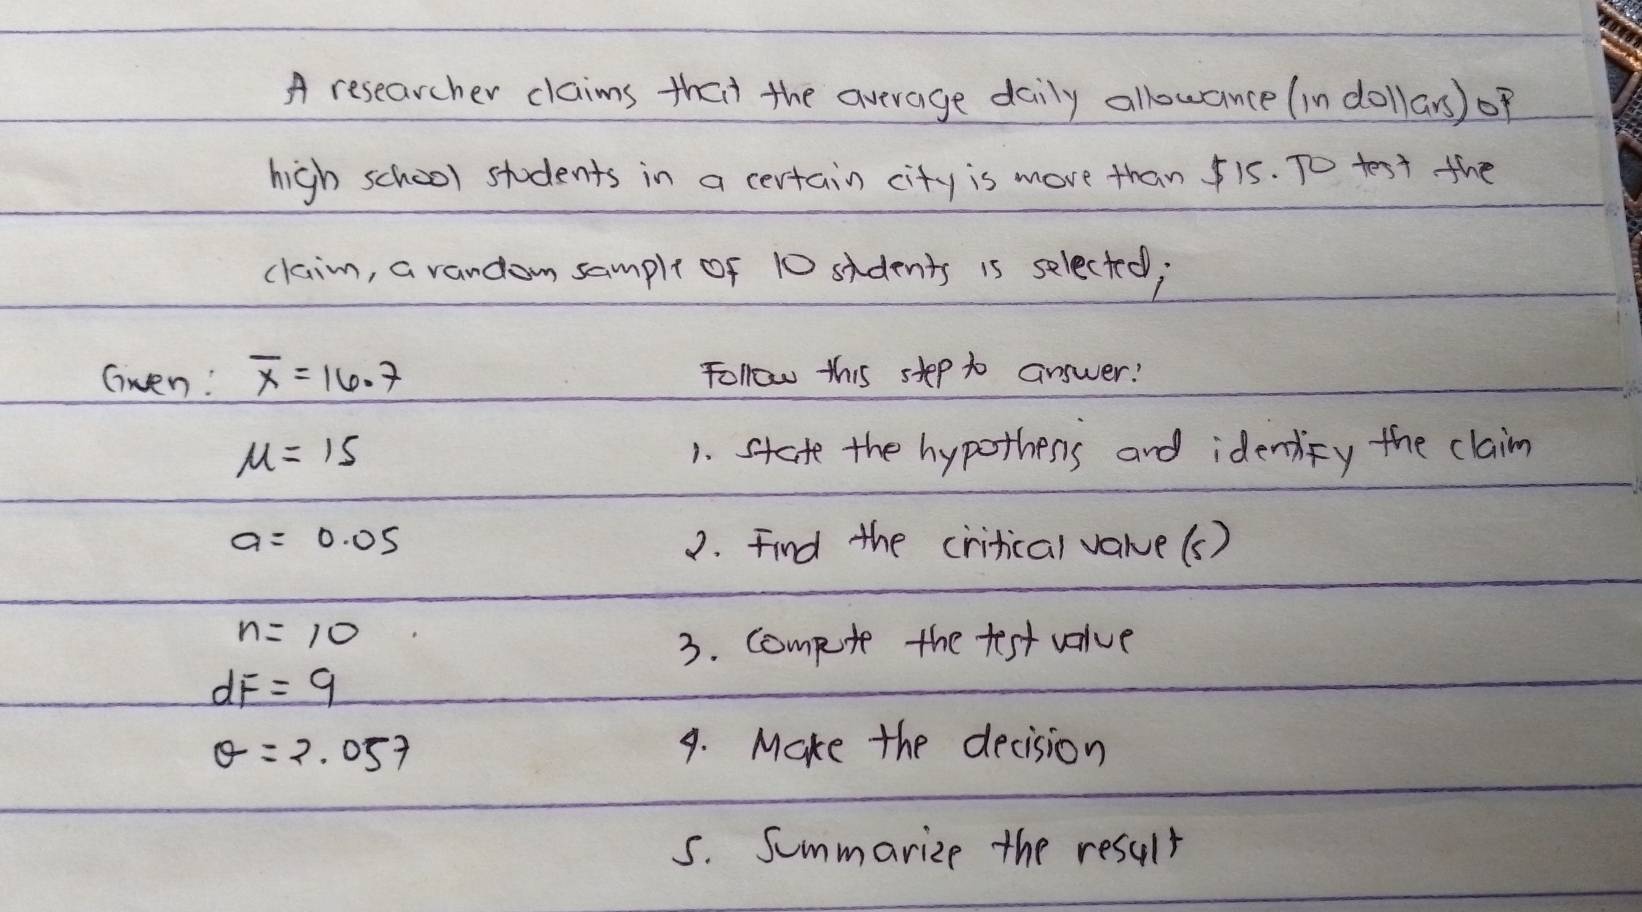 A researcher claims that the average daily allowance (in dollars) of
high school students in a certain city is more than $15. TO test the
claim, a random sample of 10 students is selected;
Given: x̄ = 16.7
Follow this step to answer:
μ = 15
1. State the hypothesis and identify the claim
a = 0.05
2. Find the critical value (s)
n = 10
3. Compute the test value
dF = 9
σ = 2.057
4. Make the decision
5. Summarize the result